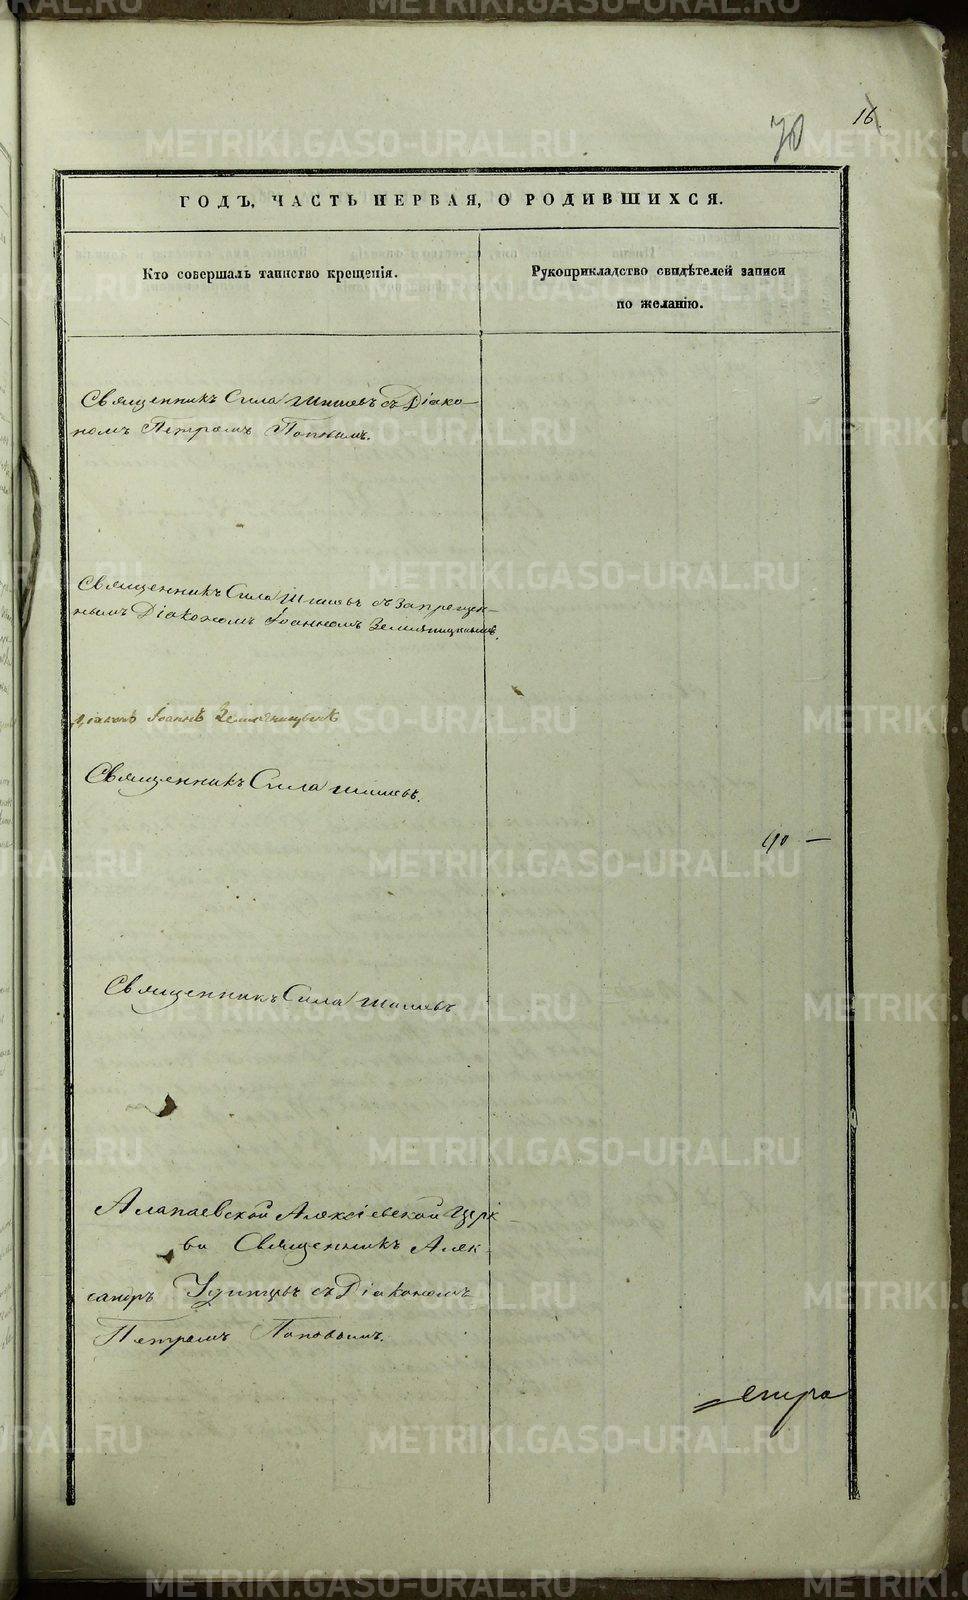 METRIKI.GASO-URAL.RU
70
16
ГОДЪ, ЧАСТЬ ПЕРВАЯ, О РОДИВШИХСЯ.
Кто совершалъ таинство крещенія.
Рукоприкладство свидѣтелей записи
по желанію.
Священникъ Сила Шишовъ съ Діако-
номъ Петромъ Поповымъ.
Священникъ Сила Шишовъ съ запрещен-
нымъ Діакономъ Іоанномъ Земляницынымъ.
Діаконъ Іоаннъ Земляницынъ
Священникъ Сила Шишовъ.
Священникъ Сила Шишовъ
Алапаевской Алексіевской Церк-
ви Священникъ Алек-
сандръ Удинцовъ съ Діакономъ
Петромъ Поповымъ.